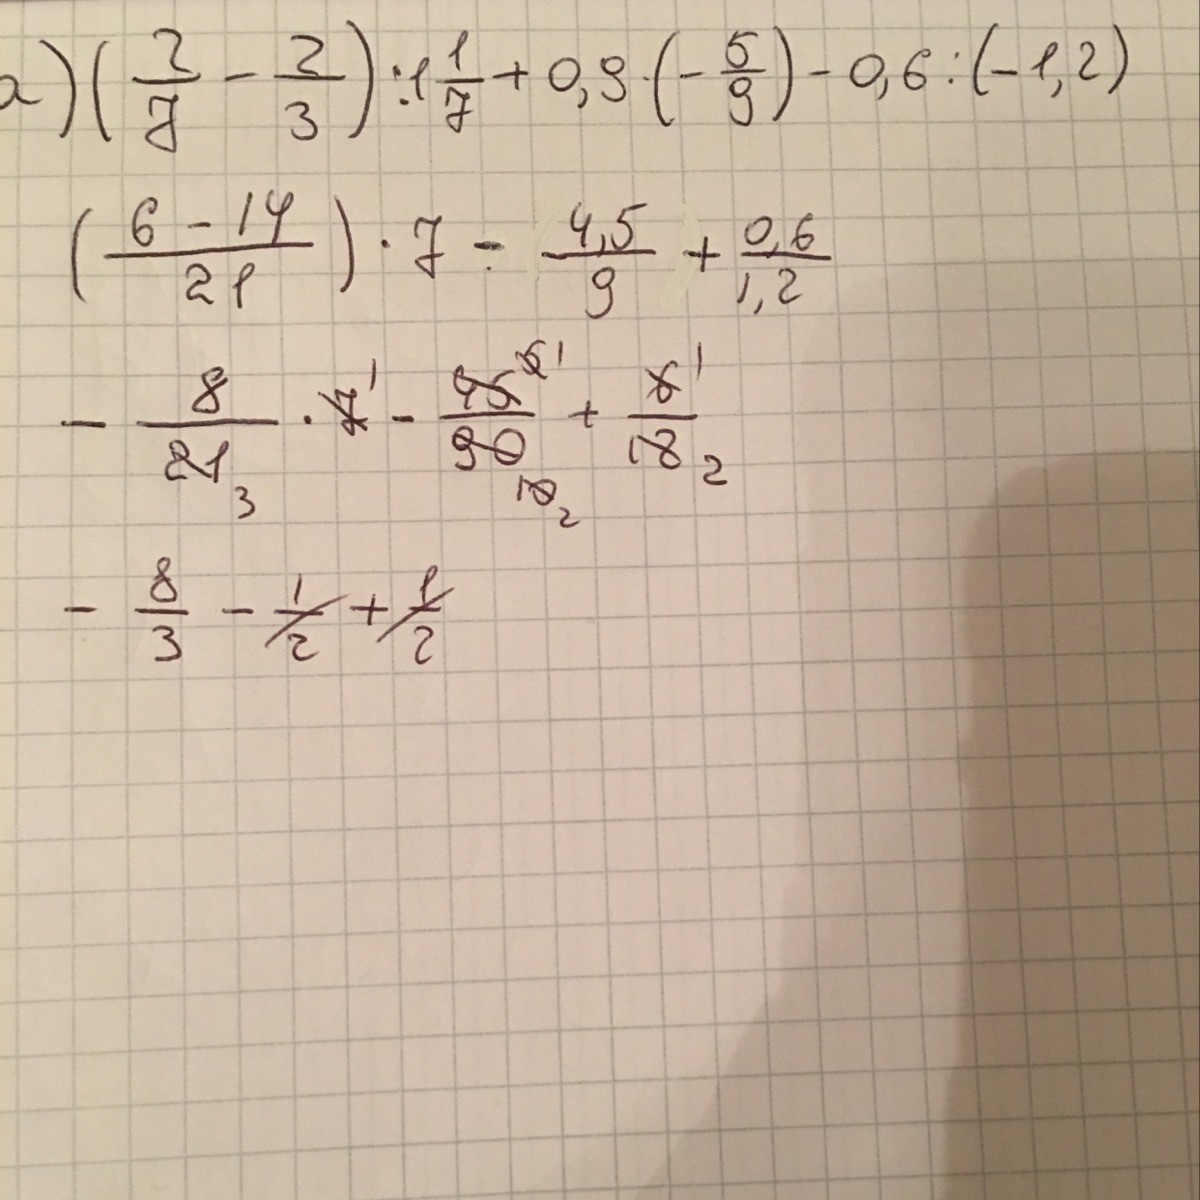 а) (2/7 - 2/3) : 1 1/7 + 0,9 · (- 5/9) - 0,6 : (-1,2)
((6 - 14)/21) · 7 - 4,5/9 + 0,6/1,2
- 8/21 3 · 7 1 - 45 5 1/90 10 2 + 6 1/12 2
- 8/3 - 1/2 + 1/2